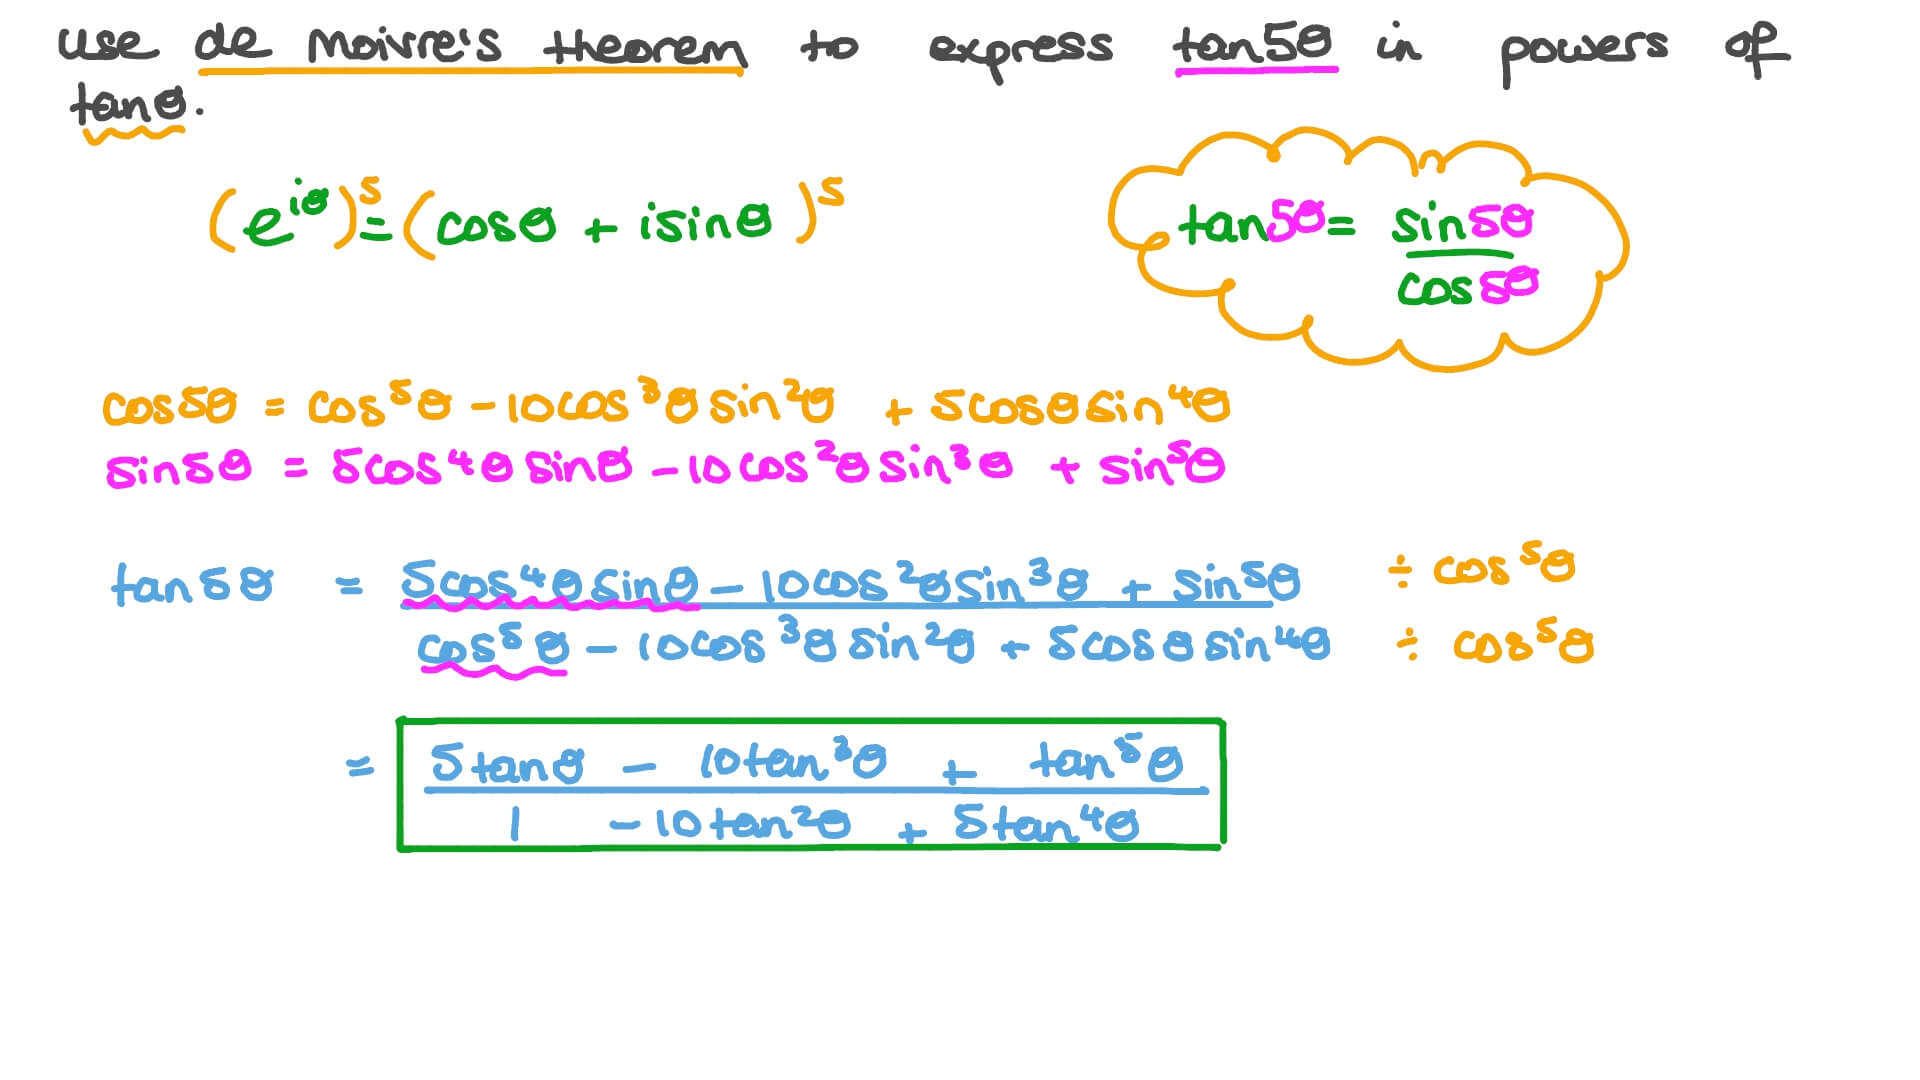 use de moivre's theorem to express tan5θ in powers of
tanθ.
(e^{iθ})^5 = (cosθ + isinθ)^5
tan5θ = sin5θ
cos5θ
cos5θ = cos^5θ - 10cos^3θ sin^2θ + 5cosθ sin^4θ
sin5θ = 5cos^4θ sinθ - 10cos^2θ sin^3θ + sin^5θ
tan5θ = 5cos^4θ sinθ - 10cos^2θ sin^3θ + sin^5θ ÷ cos^5θ
cos^5θ - 10cos^3θ sin^2θ + 5cosθ sin^4θ ÷ cos^5θ
= 5tanθ - 10tan^3θ + tan^5θ
1 - 10tan^2θ + 5tan^4θ